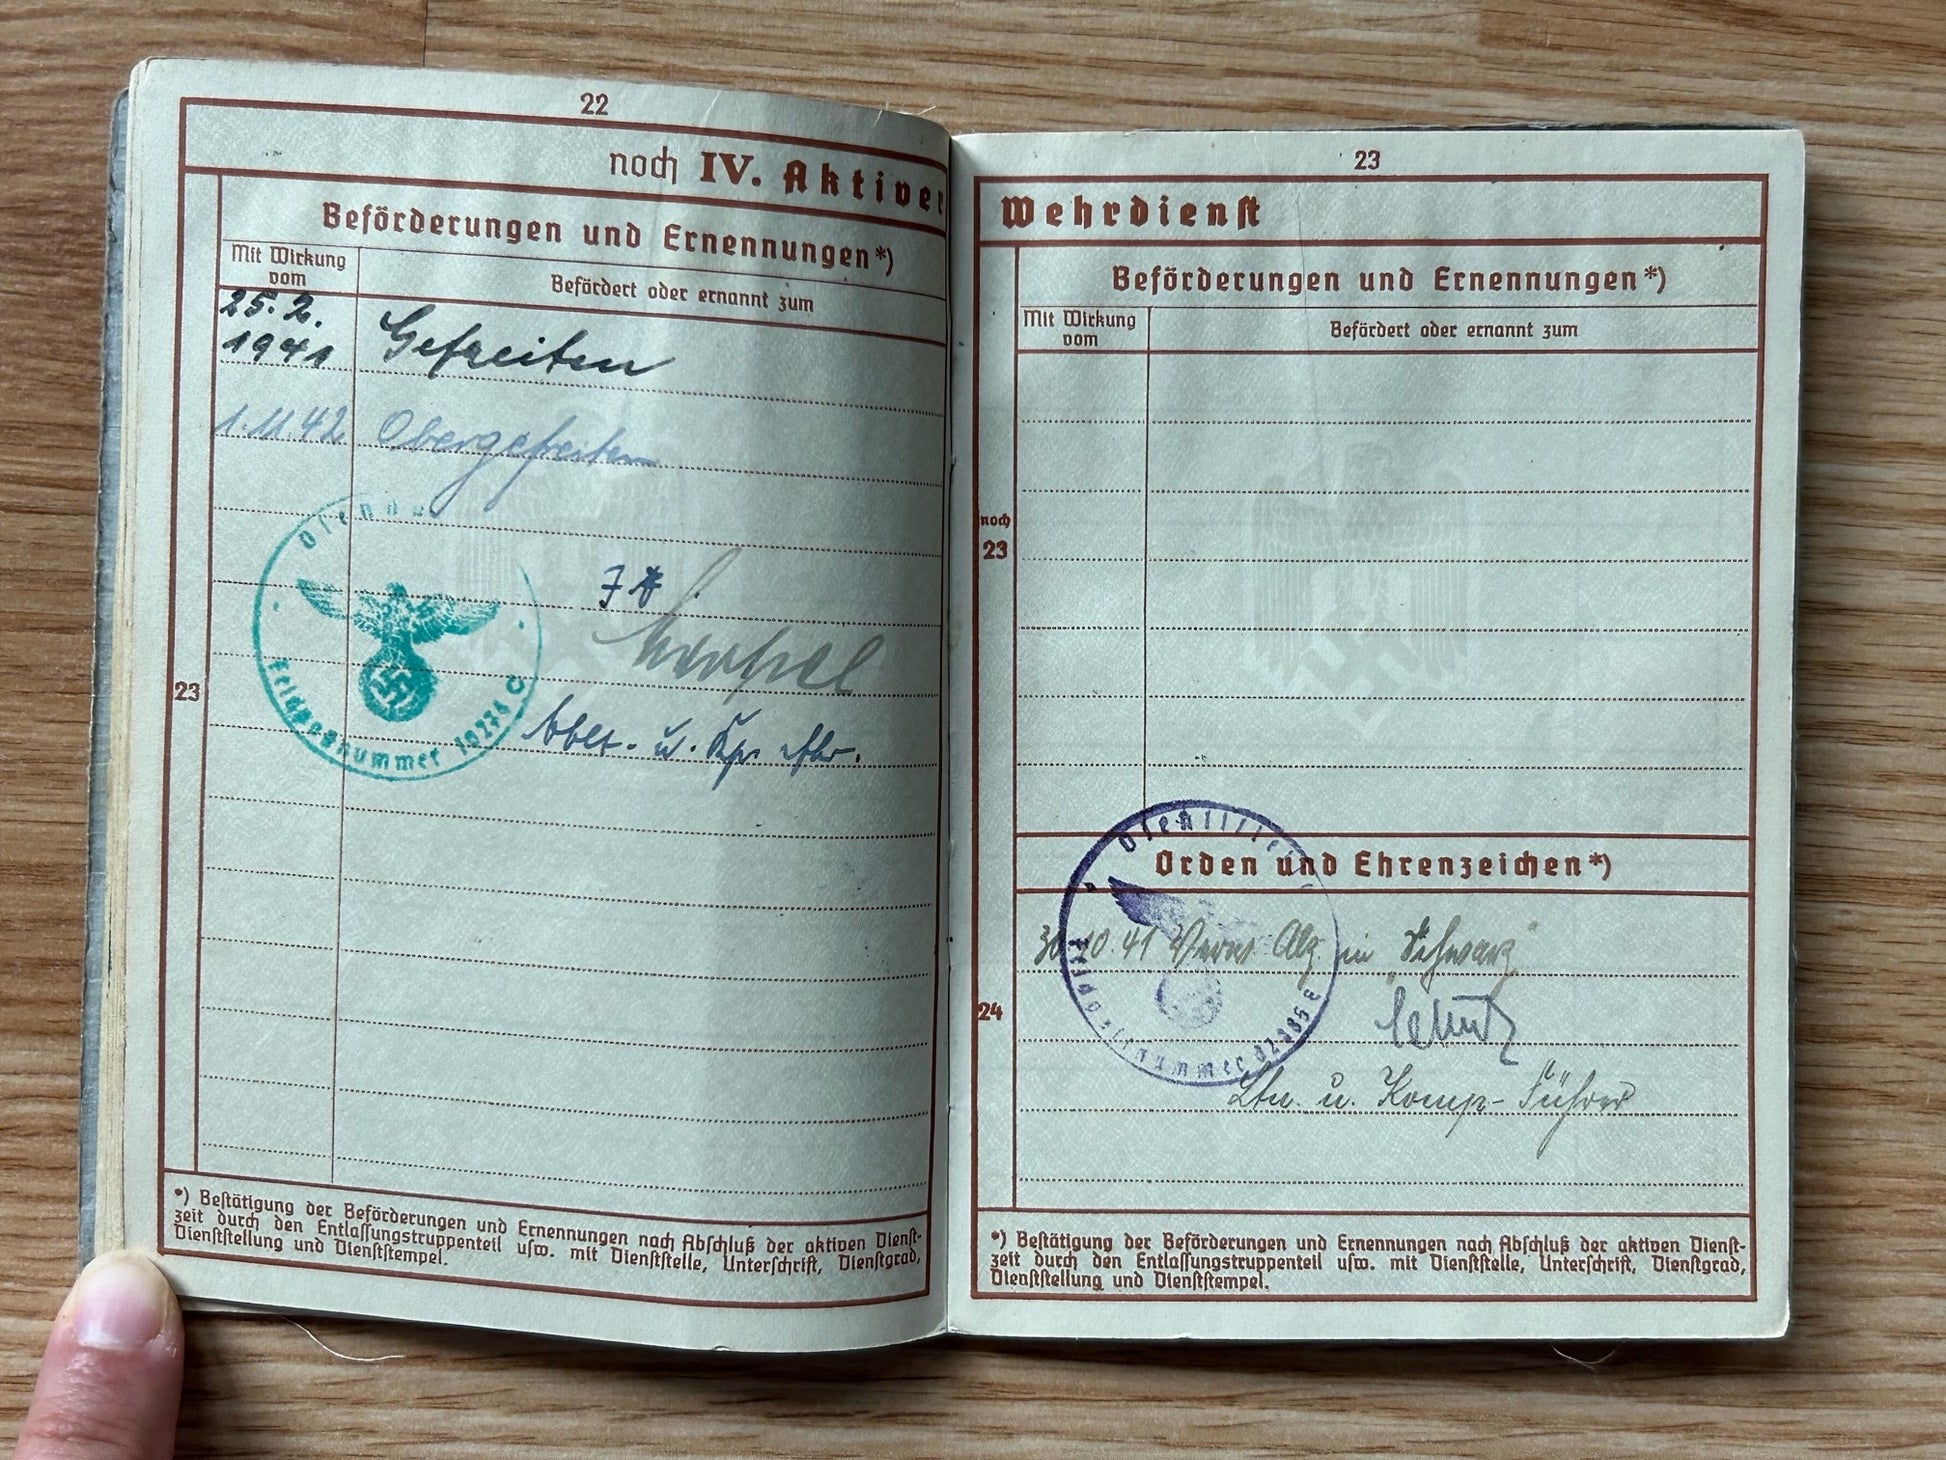 22
noch IV. Aktiver
Beförderungen und Ernennungen*)
Mit Wirkung
vom
Befördert oder ernannt zum
25. 2.
1941
Gefreiten
1.11.42 Obergefreiten
Feldpostnummer
23
Abtlt. u. Kp.
*) Bestätigung der Beförderungen und Ernennungen nach Abschluß der aktiven Dienst-
zeit durch den Entlassungstruppenteil usw. mit Dienststelle, Unterschrift, Dienstgrad,
Dienststellung und Dienststempel.
23
Wehrdienst
Beförderungen und Ernennungen*)
Mit Wirkung
vom
Befördert oder ernannt zum
noch
23
Orden und Ehrenzeichen*)
30.10.41 Verw. Abz. in "Schwarz"
24
Feldpostnummer
Ltn. u. Komp-Führer
*) Bestätigung der Beförderungen und Ernennungen nach Abschluß der aktiven Dienst-
zeit durch den Entlassungstruppenteil usw. mit Dienststelle, Unterschrift, Dienstgrad,
Dienststellung und Dienststempel.